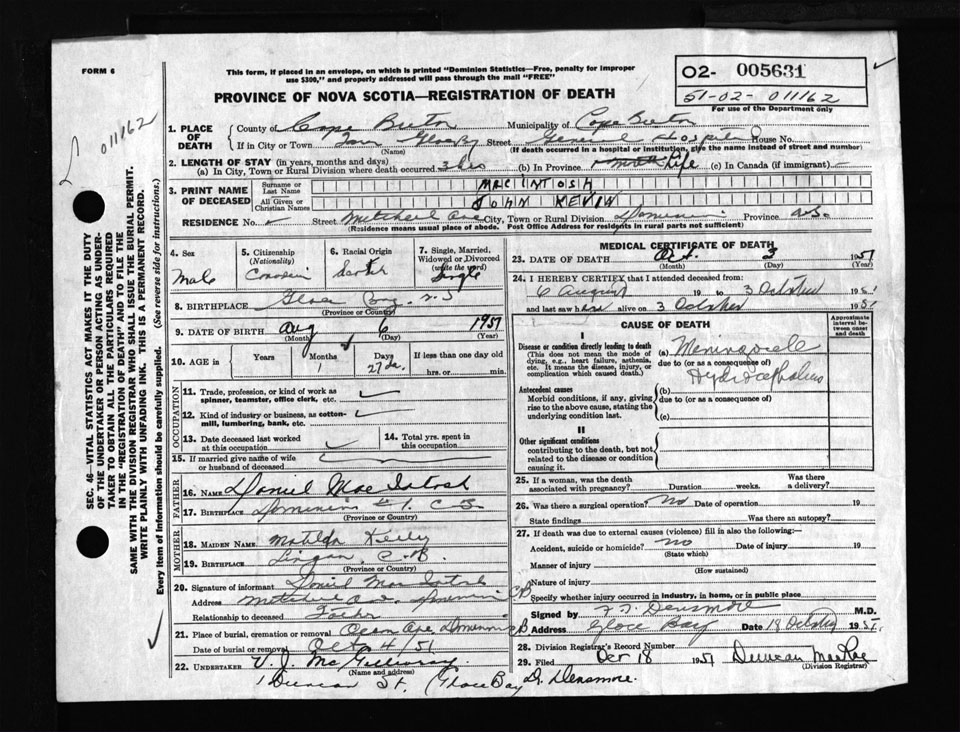 FORM 6
This form, if placed in an envelope, on which is printed "Dominion Statistics—Free, penalty for improper
use $300," and properly addressed will pass through the mail "FREE"
PROVINCE OF NOVA SCOTIA—REGISTRATION OF DEATH
O2- 005631
51-02- 011162
For use of the Department only
011162
SEC. 46—VITAL STATISTICS ACT MAKES IT THE DUTY
OF THE UNDERTAKER OR PERSON ACTING AS UNDER-
TAKER TO OBTAIN ALL THE PARTICULARS REQUIRED
IN THE "REGISTRATION OF DEATH" AND TO FILE THE
SAME WITH THE DIVISION REGISTRAR WHO SHALL ISSUE THE BURIAL PERMIT.
WRITE PLAINLY WITH UNFADING INK. THIS IS A PERMANENT RECORD.
Every item of information should be carefully supplied. (See reverse side for instructions.)
1. PLACE OF DEATH
County of Cape Breton Municipality of Cape Breton
If in City or Town Glace Bay Street General Hospital House No.
(Name) (If death occurred in hospital or institution, give the name instead of street and number)
2. LENGTH OF STAY (in years, months and days)
(a) In City, Town or Rural Division where death occurred (b) In Province Life (c) In Canada (if immigrant) -
3. PRINT NAME OF DECEASED
Surname or Last Name MAC INTOSH
All Given or Christian Names JOHN KEVIN
RESIDENCE No. - Street Mitchell Ave City, Town or Rural Division Dominion Province N.S.
(Residence means usual place of abode. Post Office Address for residents in rural parts not sufficient)
4. Sex
Male
5. Citizenship
(Nationality)
Canadian
6. Racial Origin
Scotch
7. Single, Married,
Widowed or Divorced
(write the word)
Single
8. BIRTHPLACE Glace Bay N.S
(Province or Country)
9. DATE OF BIRTH Aug 6 1951
(Month) (Day) (Year)
10. AGE in Years Months 1 Days 27 If less than one day old
hrs. or min.
OCCUPATION
11. Trade, profession, or kind of work as
spinner, teamster, office clerk, etc.
12. Kind of industry or business, as cotton-
mill, lumbering, bank, etc.
13. Date deceased last worked
at this occupation
14. Total yrs. spent in
this occupation
15. If married give name of wife
or husband of deceased
FATHER
16. NAME Daniel MacIntosh
17. BIRTHPLACE Dominion C.B.
(Province or Country)
MOTHER
18. MAIDEN NAME Matilda Kelly
19. BIRTHPLACE Lingan C.B
(Province or Country)
20. Signature of informant Daniel MacIntosh
Address Mitchell Ave Dominion CB
Relationship to deceased Father
21. Place of burial, cremation or removal Dominion CB
Date of burial or removal Oct 4/51
22. UNDERTAKER V. J. McGillivray
(Name and address)
1 Duncan St. Glace Bay
MEDICAL CERTIFICATE OF DEATH
23. DATE OF DEATH Oct. 3 1951
(Month) (Day) (Year)
24. I HEREBY CERTIFY that I attended deceased from:
6 August 19 to 3 October 1951
and last saw him alive on 3 October 1951
CAUSE OF DEATH
Approximate
interval be-
tween onset
and death
I
Disease or condition directly leading to death
(This does not mean the mode of
dying, e.g., heart failure, asthenia,
etc. It means the disease, injury, or
complication which caused death.)
(a) Meningocele
due to (or as a consequence of)
Hydrocephalus
Antecedent causes
Morbid conditions, if any, giving
rise to the above cause, stating the
underlying condition last.
(b)
due to (or as a consequence of)
(c)
II
Other significant conditions
contributing to the death, but not
related to the disease or condition
causing it.
25. If a woman, was the death
associated with pregnancy? Duration weeks. Was there
a delivery?
26. Was there a surgical operation? No Date of operation 19
State findings Was there an autopsy?
27. If death was due to external causes (violence) fill in also the following:
Accident, suicide or homicide? no Date of injury 19
(State which)
Manner of injury
(How sustained)
Nature of injury
Specify whether injury occurred in industry, in home, or in public place
Signed by F. D. Densmore M.D.
Address Glace Bay Date 18 October 1951
28. Division Registrar's Record Number
29. Filed Oct 18 1951 Duncan MacRae
(Division Registrar)
D. Densmore.